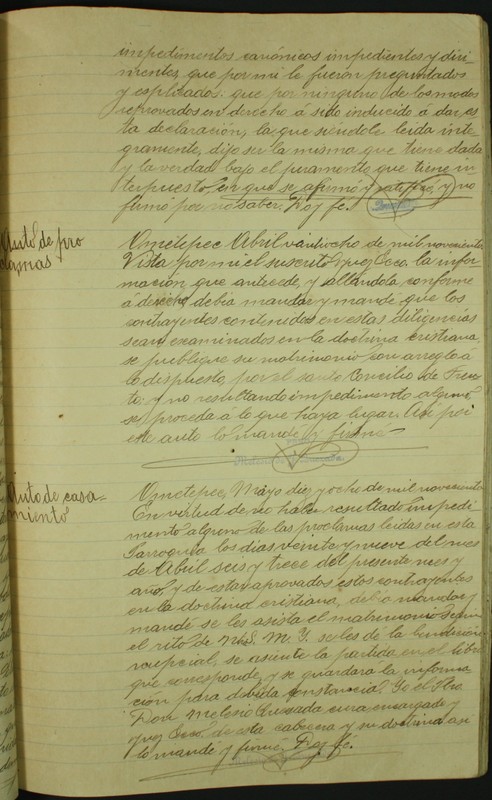 impedimentos canónicos impedientes y diri-
mentes, que por mi le fueron preguntados
y esplicados: que por ninguno de los modos
reprovados en derecho á sido inducido á dar es-
ta declaración, la que siendole leida inte-
gramente, dijo ser la misma que tiene dada
y la verdad bajo el juramento que tiene in-
terpuesto en que se afirmó y ratificó, y no
firmó por no saber. Doy fé.
Auto de pro
clamas
Ometepec Abril veintiocho de mil novecientos
Vista por mi el suscrito Juez Ecco. la infor-
mación que antecede, y allandola conforme
a derecho debia mandar y mandé que los
contrayentes contenidos en estas diligencias
sean examinados en la doctrina cristiana,
se publique su matrimonio con arreglo á
lo dispuesto por el santo Concilio de Tren-
to, y no resultando impedimento alguno
se proceda á lo que haya lugar. Asi por
este auto lo mandé y firmé
Auto de casa-
miento
Ometepec, Mayo diez y ocho de mil novecientos
En vertud de no haber resultado impedi-
mento alguno de las proclamas leidas en esta
Parroquia los dias veinte y nueve del mes
de Abril seis y trece del presente mes y
año, y de estar aprovados estos contrayentes
en la doctrina cristiana, debia mandar y
mandé se les asista el matrimonio segun
el rito de N. S. M. Y. se les de la bendicion
nupcial, se asiente la partida en el libro
que corresponde, y se guardará la informa-
ción para debida constancia. Yo el Pbro
Don Melesio Quesada cura encargado y
juez Ecco. de esta cabecera y su doctrina asi
lo mandé y firmé. Doy fé.